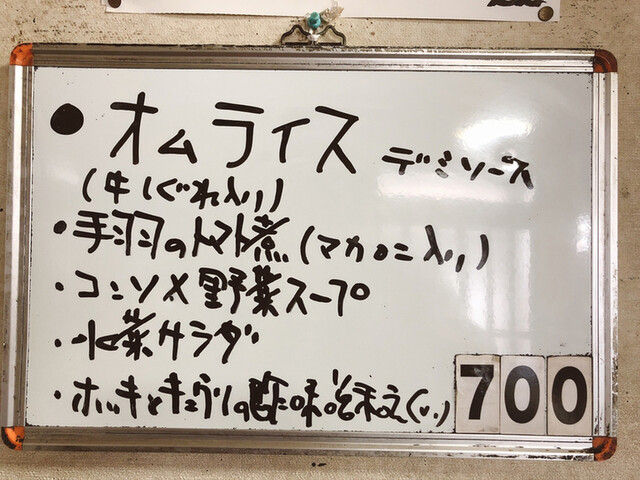 ● オムライス デミソース
(牛しぐれ入り)
・手羽のトマト煮(マカロニ入り)
・コンソメ野菜スープ
・水菜サラダ
・ホッキとキュウリの酢味噌和え(い)
700